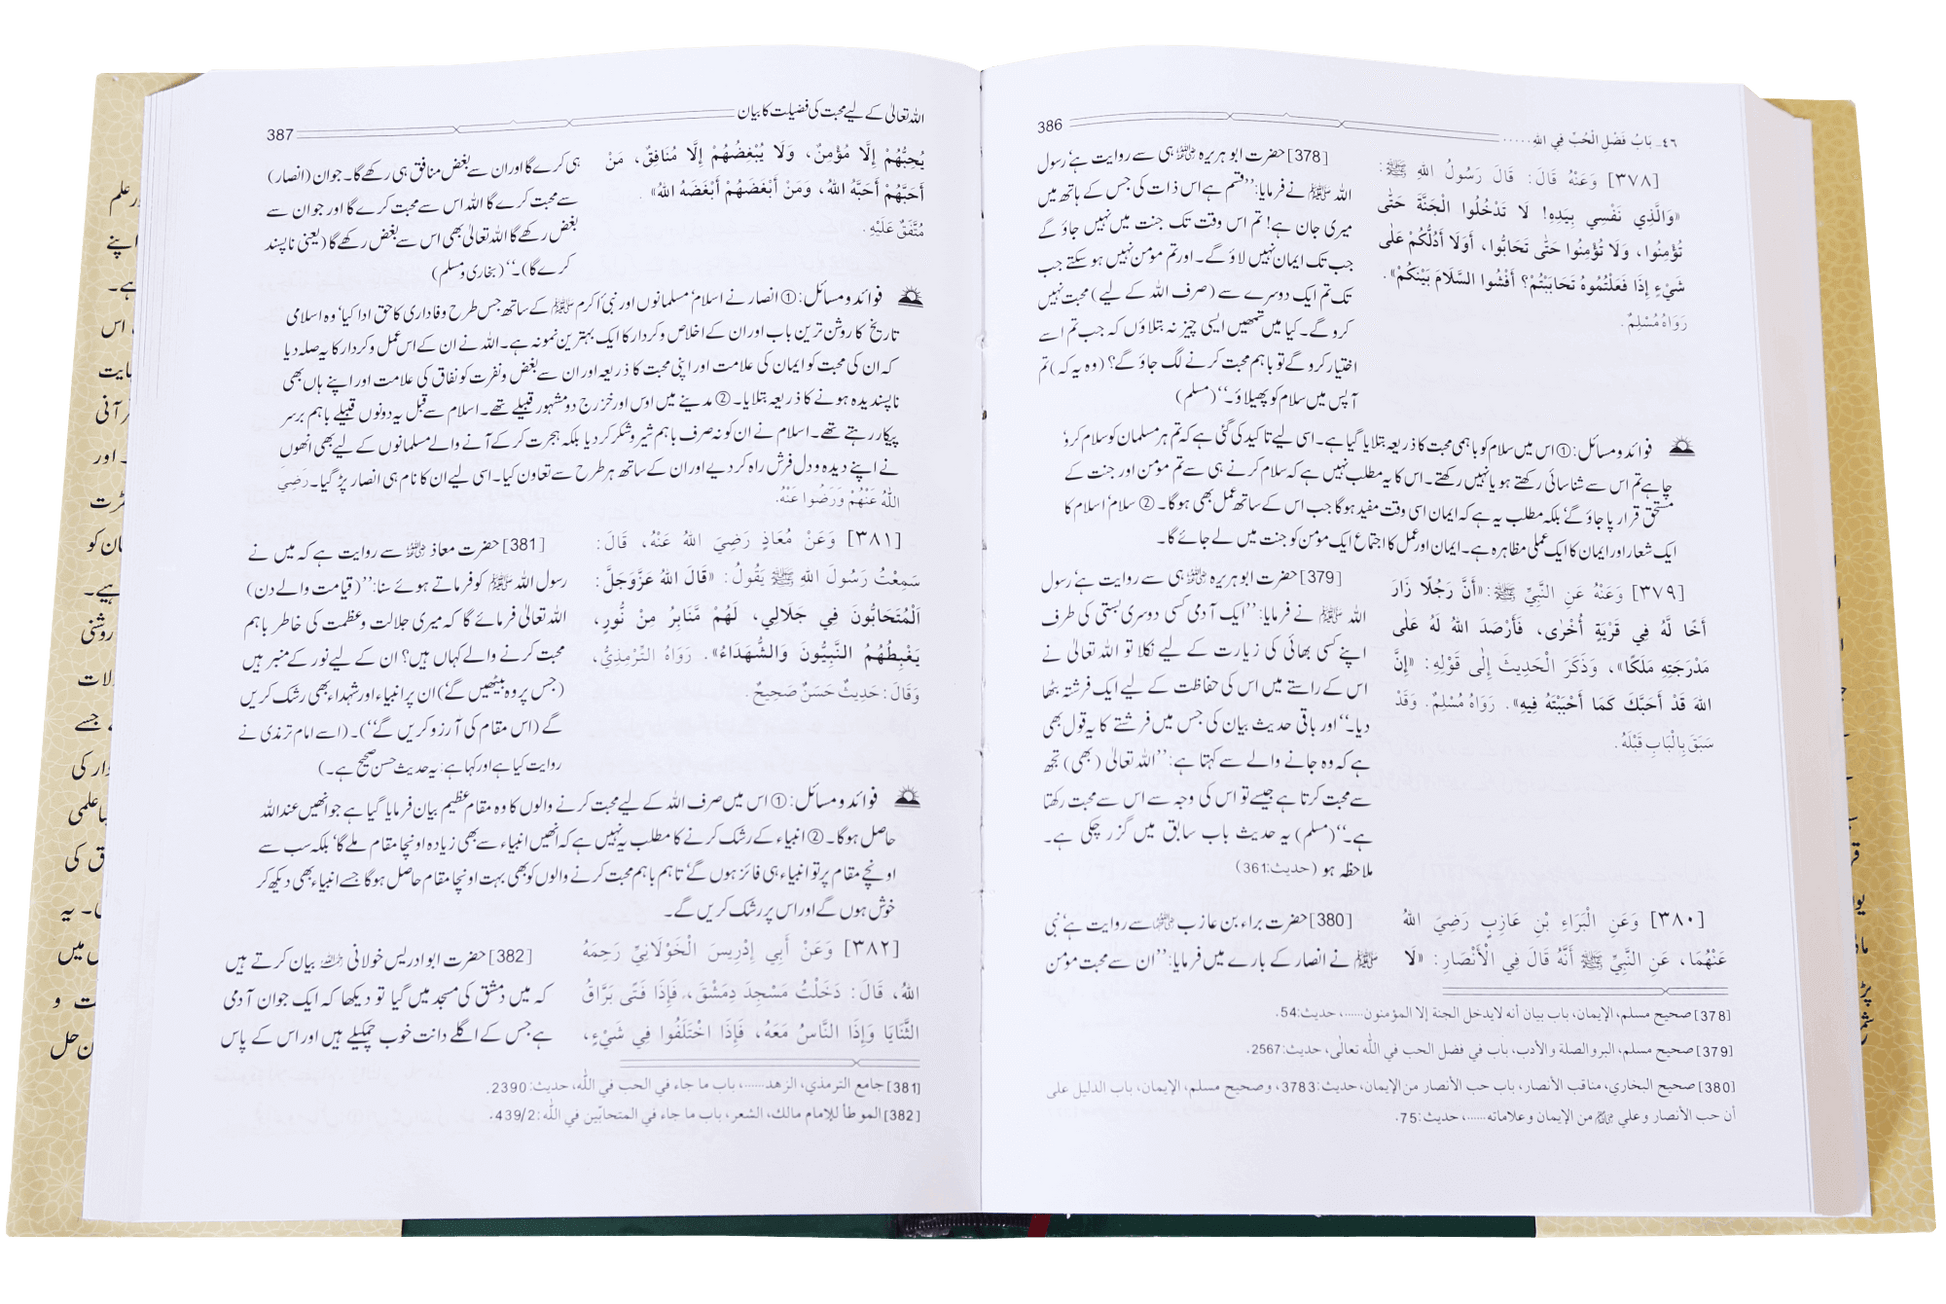 ٤٦ـ بَابُ فَضْلِ الْحُبِّ فِي اللهِ .....
386
[٣٧٨] وَعَنْهُ قَالَ: قَالَ رَسُولُ اللهِ ﷺ:
«وَالَّذِي نَفْسِي بِيَدِهِ! لَا تَدْخُلُوا الْجَنَّةَ حَتَّى
تُؤْمِنُوا، وَلَا تُؤْمِنُوا حَتَّى تَحَابُّوا، أَوَلَا أَدُلُّكُمْ عَلٰى
شَيْءٍ إِذَا فَعَلْتُمُوهُ تَحَابَبْتُمْ؟ أَفْشُوا السَّلَامَ بَيْنَكُمْ».
رَوَاهُ مُسْلِمٌ.
[378] حضرت ابو ہریرہ ﷜ ہی سے روایت ہے، رسول
اللہ ﷺ نے فرمایا: ’’قسم ہے اس ذات کی جس کے ہاتھ میں
میری جان ہے! تم اس وقت تک جنت میں نہیں جاؤ گے
جب تک ایمان نہیں لاؤ گے۔ اور تم مومن نہیں ہو سکتے جب
تک تم ایک دوسرے سے (صرف اللہ کے لیے) محبت نہیں
کرو گے۔ کیا میں تمھیں ایسی چیز نہ بتلاؤں کہ جب تم اسے
اختیار کرو گے تو باہم محبت کرنے لگ جاؤ گے؟ (وہ یہ کہ) تم
آپس میں سلام کو پھیلاؤ۔‘‘ (مسلم)
فوائد و مسائل: ① اس میں سلام کو باہمی محبت کا ذریعہ بتلایا گیا ہے۔ اسی لیے تاکید کی گئی ہے کہ تم ہر مسلمان کو سلام کرو،
چاہے تم اس سے شناسائی رکھتے ہو یا نہیں رکھتے۔ اس کا یہ مطلب نہیں ہے کہ سلام کرنے ہی سے تم مومن اور جنت کے
مستحق قرار پا جاؤ گے، بلکہ مطلب یہ ہے کہ ایمان اسی وقت مفید ہوگا جب اس کے ساتھ عمل بھی ہوگا۔ ② سلام، اسلام کا
ایک شعار اور ایمان کا ایک عملی مظاہرہ ہے۔ ایمان اور عمل کا اجتماع ایک مومن کو جنت میں لے جائے گا۔
[٣٧٩] وَعَنْهُ عَنِ النَّبِيِّ ﷺ: «أَنَّ رَجُلًا زَارَ
أَخًا لَهُ فِي قَرْيَةٍ أُخْرٰى، فَأَرْصَدَ اللهُ لَهُ عَلٰى
مَدْرَجَتِهِ مَلَكًا»، وَذَكَرَ الْحَدِيثَ إِلٰى قَوْلِهِ: «إِنَّ
اللهَ قَدْ أَحَبَّكَ كَمَا أَحْبَبْتَهُ فِيهِ». رَوَاهُ مُسْلِمٌ. وَقَدْ
سَبَقَ بِالْبَابِ قَبْلَهُ.
[379] حضرت ابو ہریرہ ﷜ ہی سے روایت ہے، رسول
اللہ ﷺ نے فرمایا: ’’ایک آدمی کسی دوسری بستی کی طرف
اپنے کسی بھائی کی زیارت کے لیے نکلا تو اللہ تعالیٰ نے
اس کے راستے میں اس کی حفاظت کے لیے ایک فرشتہ بٹھا
دیا۔‘‘ اور باقی حدیث بیان کی جس میں فرشتے کا یہ قول بھی
ہے کہ وہ جانے والے سے کہتا ہے: ’’اللہ تعالیٰ (بھی) تجھ
سے محبت کرتا ہے جیسے تو اس کی وجہ سے اس سے محبت رکھتا
ہے۔‘‘ (مسلم) یہ حدیث باب سابق میں گزر چکی ہے۔
ملاحظہ ہو (حدیث:361)
[٣٨٠] وَعَنِ الْبَرَاءِ بْنِ عَازِبٍ رَضِيَ اللهُ
عَنْهُمَا، عَنِ النَّبِيِّ ﷺ أَنَّهُ قَالَ فِي الْأَنْصَارِ: «لَا
[380] حضرت براء بن عازب ﷠ سے روایت ہے، نبی
ﷺ نے انصار کے بارے میں فرمایا: ’’ان سے محبت مومن
[378] صحيح مسلم، الإيمان، باب بيان أنه لا يدخل الجنة إلا المؤمنون......، حديث:54.
[379] صحيح مسلم، البر والصلة والأدب، باب في فضل الحب في اللّٰه تعالٰى، حديث:2567.
[380] صحيح البخاري، مناقب الأنصار، باب حب الأنصار من الإيمان، حديث:3783، وصحيح مسلم، الإيمان، باب الدليل على
أن حب الأنصار و علي ﷡ من الإيمان وعلاماته......، حديث:75.
اللہ تعالیٰ کے لیے محبت کی فضیلت کا بیان
387
يُحِبُّهُمْ إِلَّا مُؤْمِنٌ، وَلَا يُبْغِضُهُمْ إِلَّا مُنَافِقٌ، مَنْ
أَحَبَّهُمْ أَحَبَّهُ اللهُ، وَمَنْ أَبْغَضَهُمْ أَبْغَضَهُ اللهُ».
مُتَّفَقٌ عَلَيْهِ.
ہی کرے گا اور ان سے بغض منافق ہی رکھے گا۔ جو ان (انصار)
سے محبت کرے گا اللہ اس سے محبت کرے گا اور جو ان سے
بغض رکھے گا اللہ تعالیٰ بھی اس سے بغض رکھے گا (یعنی ناپسند
کرے گا)۔‘‘ (بخاری و مسلم)
فوائد و مسائل: ① انصار نے اسلام، مسلمانوں اور نبیٔ اکرم ﷺ کے ساتھ جس طرح وفاداری کا حق ادا کیا، وہ اسلامی
تاریخ کا روشن ترین باب اور ان کے اخلاص و کردار کا ایک بہترین نمونہ ہے۔ اللہ نے ان کے اس عمل و کردار کا یہ صلہ دیا
کہ ان کی محبت کو ایمان کی علامت اور اپنی محبت کا ذریعہ اور ان سے بغض و نفرت کو نفاق کی علامت اور اپنے ہاں بھی
ناپسندیدہ ہونے کا ذریعہ بتلایا۔ ② مدینے میں اوس اور خزرج دو مشہور قبیلے تھے۔ اسلام سے قبل یہ دونوں قبیلے باہم برسر
پیکار رہتے تھے۔ اسلام نے ان کو نہ صرف باہم شیر و شکر کر دیا بلکہ ہجرت کر کے آنے والے مسلمانوں کے لیے بھی انھوں
نے اپنے دیدہ و دل فرش راہ کر دیے اور ان کے ساتھ ہر طرح سے تعاون کیا۔ اسی لیے ان کا نام ہی انصار پڑ گیا۔ رَضِيَ
اللهُ عَنْهُمْ وَرَضُوا عَنْهُ.
[٣٨١] وَعَنْ مُعَاذٍ رَضِيَ اللهُ عَنْهُ، قَالَ:
سَمِعْتُ رَسُولَ اللهِ ﷺ يَقُولُ: «قَالَ اللهُ عَزَّوَجَلَّ:
اَلْمُتَحَابُّونَ فِي جَلَالِي، لَهُمْ مَّنَابِرُ مِنْ نُّورٍ،
يَغْبِطُهُمُ النَّبِيُّونَ وَالشُّهَدَاءُ». رَوَاهُ التِّرْمِذِيُّ،
وَقَالَ: حَدِيثٌ حَسَنٌ صَحِيحٌ.
[381] حضرت معاذ ﷜ سے روایت ہے کہ میں نے
رسول اللہ ﷺ کو فرماتے ہوئے سنا: ’’(قیامت والے دن)
اللہ تعالیٰ فرمائے گا کہ میری جلالت و عظمت کی خاطر باہم
محبت کرنے والے کہاں ہیں؟ ان کے لیے نور کے منبر ہیں
(جس پر وہ بیٹھیں گے) ان پر انبیاء اور شہداء بھی رشک کریں
گے (اس مقام کی آرزو کریں گے‘‘)۔ (اسے امام ترمذی نے
روایت کیا ہے اور کہا ہے: یہ حدیث حسن صحیح ہے۔)
فوائد و مسائل: ① اس میں صرف اللہ کے لیے محبت کرنے والوں کا وہ مقام عظیم بیان فرمایا گیا ہے جو انھیں عند اللہ
حاصل ہوگا۔ ② انبیاء کے رشک کرنے کا مطلب یہ نہیں ہے کہ انھیں انبیاء سے بھی زیادہ اونچا مقام ملے گا، بلکہ سب سے
اونچے مقام پر تو انبیاء ہی فائز ہوں گے، تاہم باہم محبت کرنے والوں کو بھی بہت اونچا مقام حاصل ہوگا جسے انبیاء بھی دیکھ کر
خوش ہوں گے اور اس پر رشک کریں گے۔
[٣٨٢] وَعَنْ أَبِي إِدْرِيسَ الْخَوْلَانِيِّ رَحِمَهُ
اللهُ، قَالَ: دَخَلْتُ مَسْجِدَ دِمَشْقَ، فَإِذَا فَتًى بَرَّاقُ
الثَّنَايَا وَإِذَا النَّاسُ مَعَهُ، فَإِذَا اخْتَلَفُوا فِي شَيْءٍ،
[382] حضرت ابو ادریس خولانی ﷫ بیان کرتے ہیں
کہ میں دمشق کی مسجد میں گیا تو دیکھا کہ ایک جوان آدمی
ہے جس کے اگلے دانت خوب چمکیلے ہیں اور اس کے پاس
[381] جامع الترمذي، الزهد......، باب ما جاء في الحب في اللّٰه، حديث:2390.
[382] الموطأ للإمام مالك، الشعر، باب ما جاء في المتحابّين في اللّٰه:439/2.